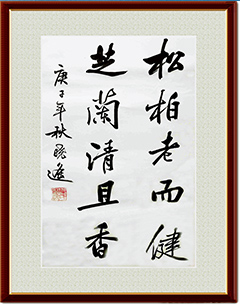 松柏老而健
芝蘭清且香
庚子年秋晓進